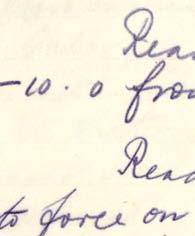 Rea
-10.0 fro
Read
to force on